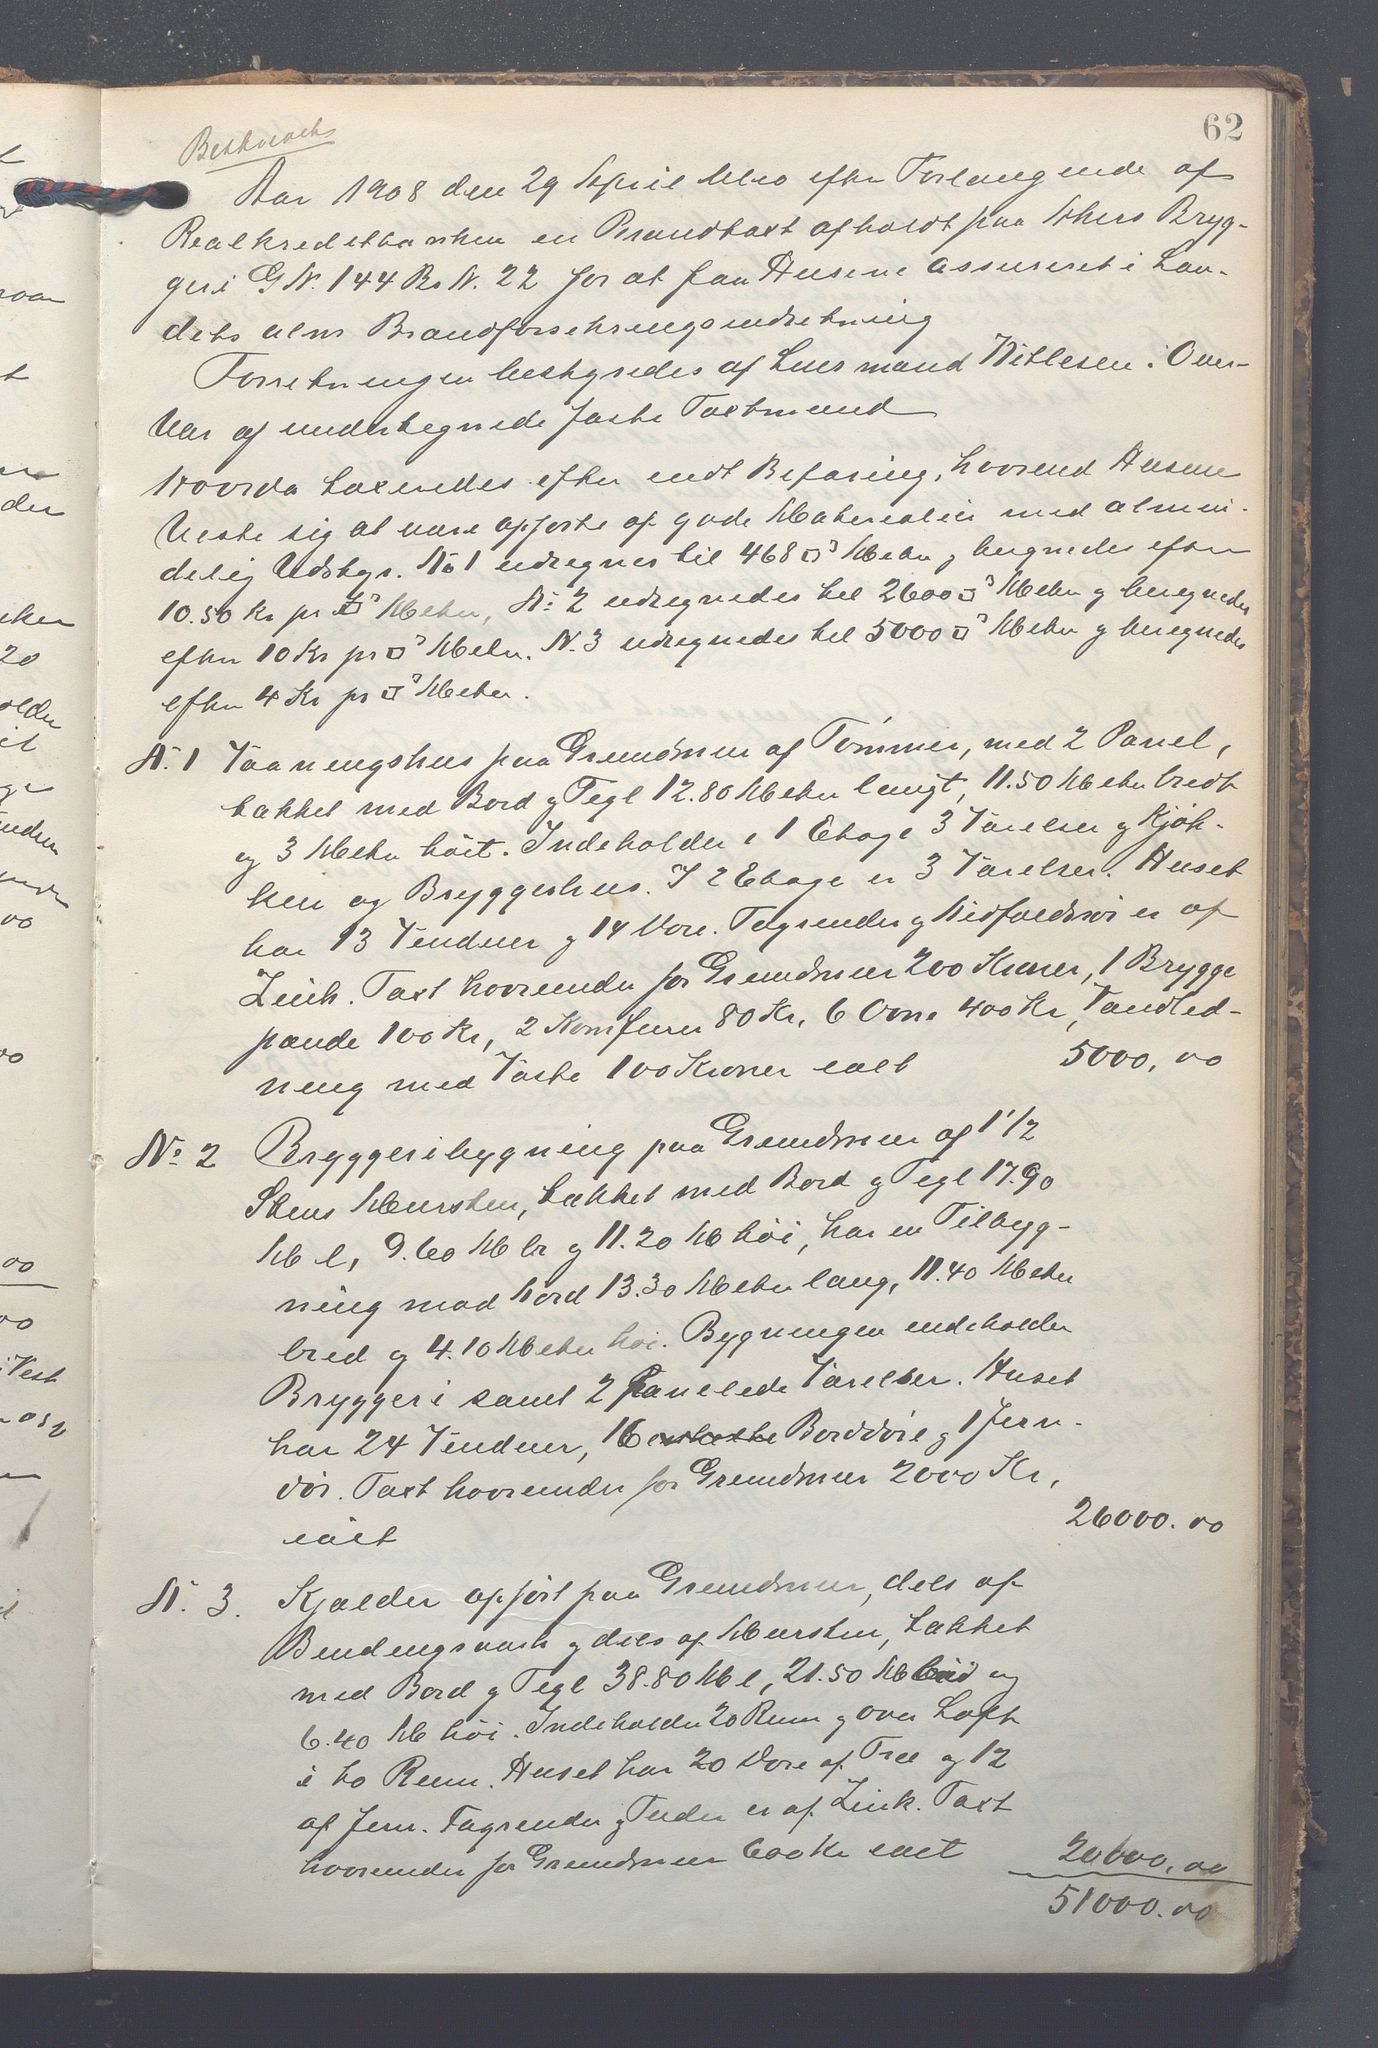 62
Beskrevet
Aar 1908 den 29 April blev efter Forlangende af
Realkreditbanken en Brandtaxt afholdt paa Bryg-
geri G N. 144 Br N. 22 for at faa Husene assureret i Lan-
dets alm Brandforsikringsindretning
Forretningen bestyredes af Lensmand Nitlesen i Over-
vær af undertegnede faste Taxtmænd
Hvorda taxeredes efter endt Befaring, hvorved Husene
viste sig at være opførte af gode Materialier med almin-
delig Udstyr. No 1 udregnes til 468 □³ Meter g beregnedes efter
10.50 Kr pr □³ Meter, No 2 udregnedes til 2600 □³ Meter g beregnedes
efter 10 Kr pr □³ Meter. N. 3 udregnedes til 5000 □³ Meter g beregnedes
efter 4 Kr pr □³ Meter.
N. 1 Vaaningshus paa Grundmur af Tømmer, med 2 Panel,
takket med Bord g Tegl 12.80 Meter langt, 11.50 Meter bredt
og 3 Meter høit. Indeholder i 1 Etage 3 Værelser g Kjøk-
ken og Bryggerhus. I 2 Etage er 3 Værelser. Huset
har 13 Vinduer g 14 Døre. Tagrender g Nedfaldsrør er af
Zink. Taxt hvorunder for Grundmur 200 Kroner, 1 Brygge
pande 100 Kr, 2 Komfurer 80 Kr, 6 Ovne 400 Kr, Vandled-
ning med Vaske 100 Kroner ialt 5000,00
No 2 Bryggeribygning paa Grundmur af 1 1/2
Stens Mursten, takket med Bord g Tegl 17.90
M l, 9.60 M br g 11.20 M høi, har en Tilbyg-
ning mod Nord 13.30 Meter lang, 11.40 Meter
bred g 4.10 Meter høi. Bygningen indeholder
Bryggeri samt 2 panelede Værelser. Huset
har 24 Vinduer, 16 Borddøre g 1 Jern-
dør. Taxt hvorunder for Grundmur 2000 Kr,
ialt 26000.00
N. 3. Kjælder opført paa Grundmur, dels af
Bindingsværk g dels af Mursten, takket
med Bord g Tegl 38.80 M l, 21.50 M bred og
6.40 M høi. Indeholder 20 Rum g over Loft
i to Rum. Huset har 20 Døre af Træ og 12
af Jern. Tagrender g Tuder er af Zink. Taxt
hvorunder for Grundmur 600 Kr ialt 20000,00
51000.00